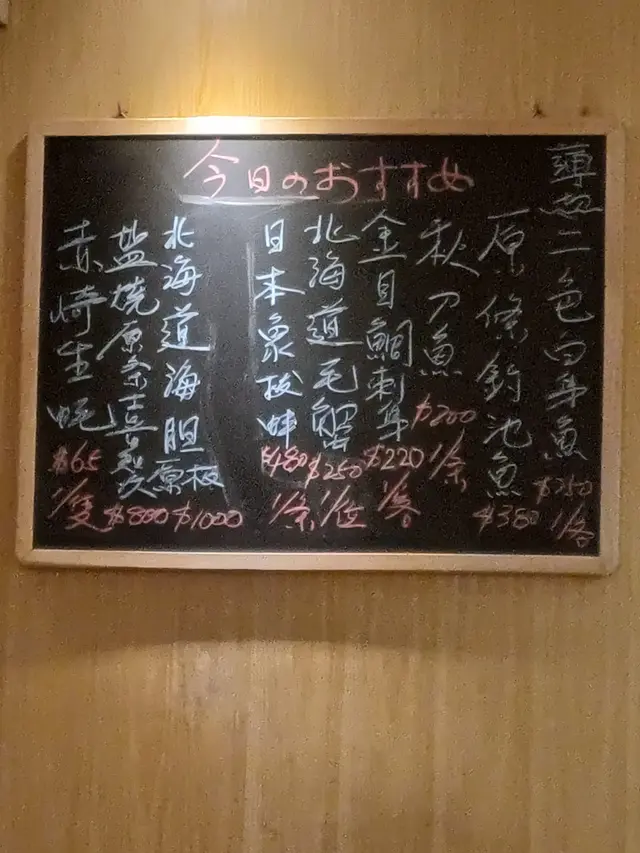 今日のおすすめ
薄造二色白身魚 $250 1/客
原條釣池魚 $380
秋刀魚 $200 1/条
金目鯛刺身 $220 1/客
北海道毛蟹 $250 1/位
日本象拔蚌 $480 1/条
北海道海胆 原板 $1000
盐燒原条喜知次 $800
赤崎生蚝 $65 1/隻